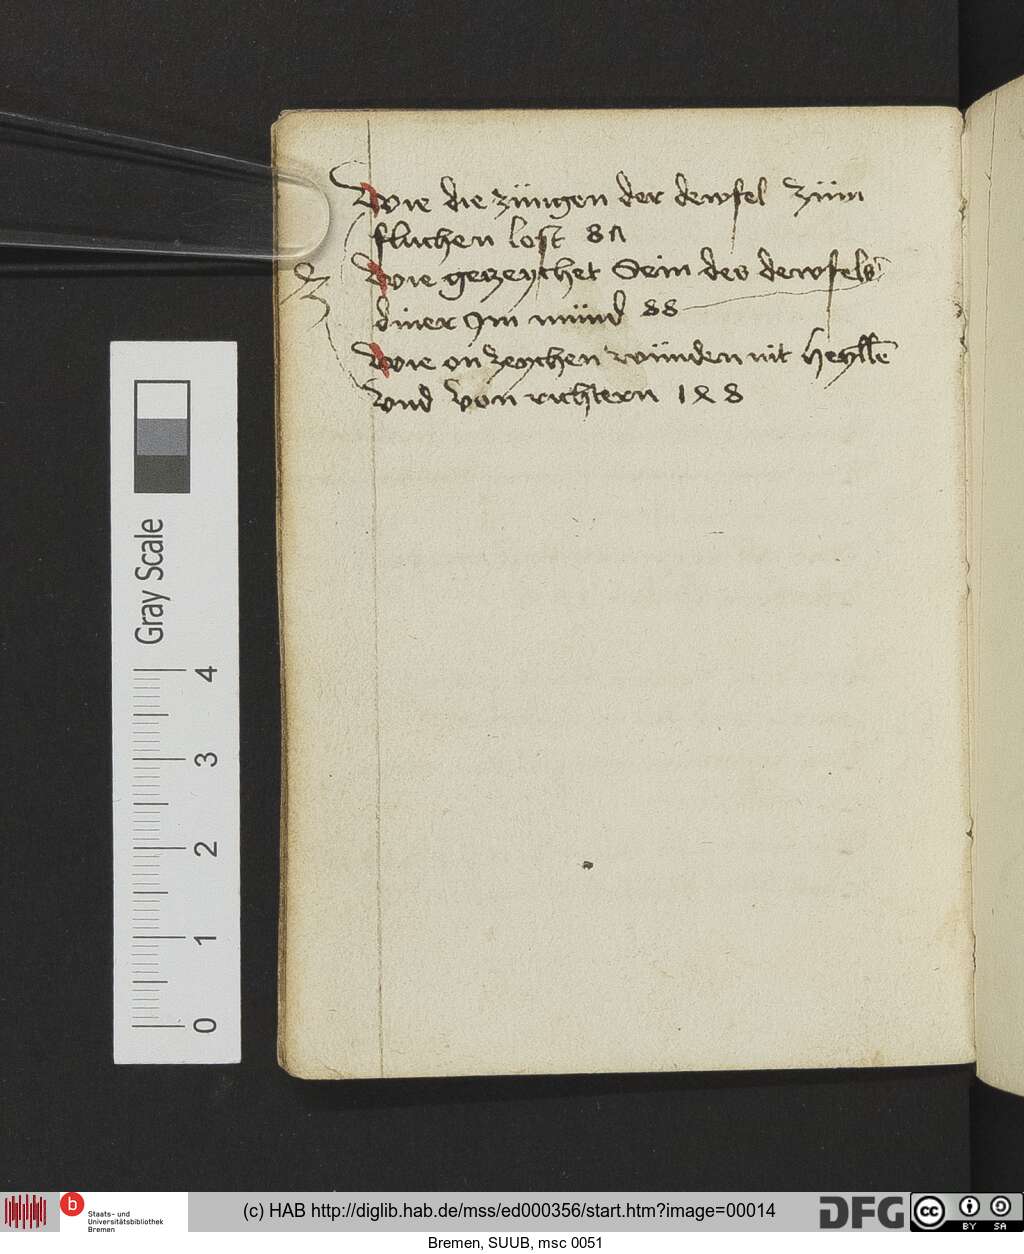 Wie die züngen der dewfel züm
fluchen lost 87
Wie gezeychet Sein des dewfels
diner Im münd 88
Wie on zeychen wünden nit heyllē
vnd von richtern 128
Gray Scale
4
3
2
1
0
b
Staats- und
Universitätsbibliothek
Bremen
(c) HAB http://diglib.hab.de/mss/ed000356/start.htm?image=00014
DFG
cc
BY SA
Bremen, SUUB, msc 0051